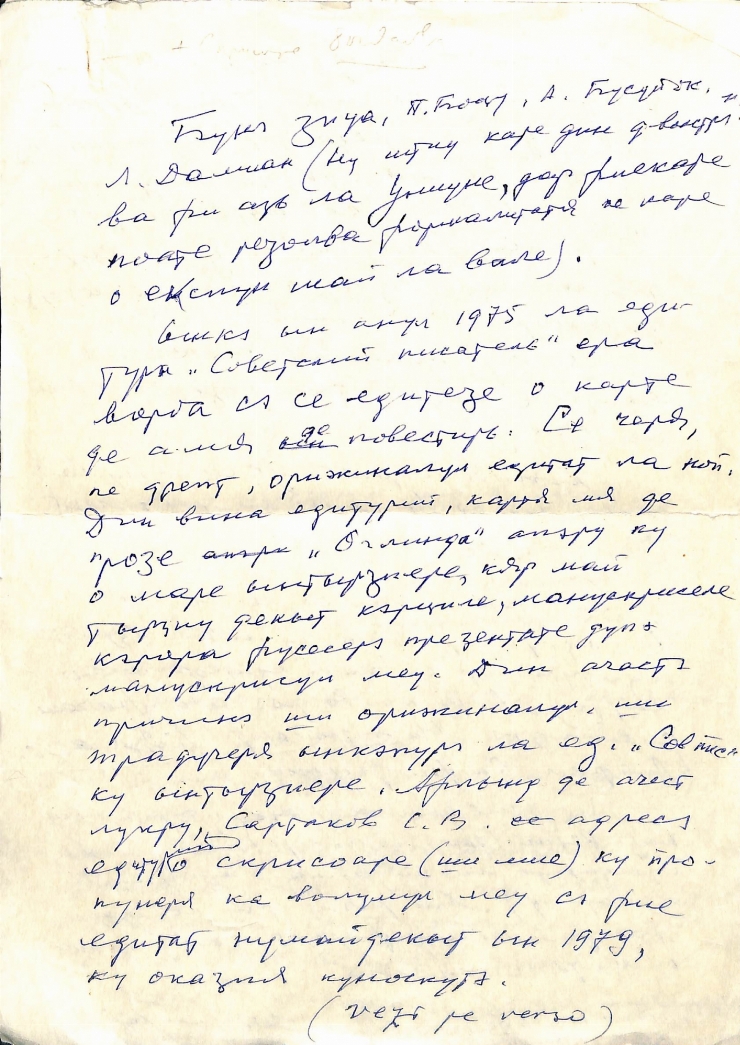 Бунэ зиуа, П. Боцу, А. Бусуйок,
Л. Дамиан (Ну штиу каре дин д-воастрэ
ва фи азь ла Униуне, дар фиекаре
поате резолва формалитатя пе каре
о експун май ла вале).
Ынкэ ын анул 1975 ла еди-
тура „Советский писатель" ера
ворба сэ се едитезе о карте
де а мя де повестирь. Се черя,
пе дрепт, орижиналул едитат ла ной.
Дин вина едитурий, картя мя де
прозе „Оглинда" апэру ку
о маре ынтырзиере, кяр май
тырзиу декыт кэрциле, манускриселе
кэрора фусесерэ презентате дупэ
манускрисул меу. Дин ачастэ
причинэ ши орижиналул, ши
традучеря ынкэпурэ ла ед. „Сов пис"
ку ынтырзиере. Афлынд де ачест
лукру, Сартаков С. В. адресэ
едитурий о скрисоаре (ши мие) ку про-
пунеря ка волумул меу сэ фие
едитат нумайдекыт ын 1979,
ку оказия куноскутэ.
(vezi pe verso)